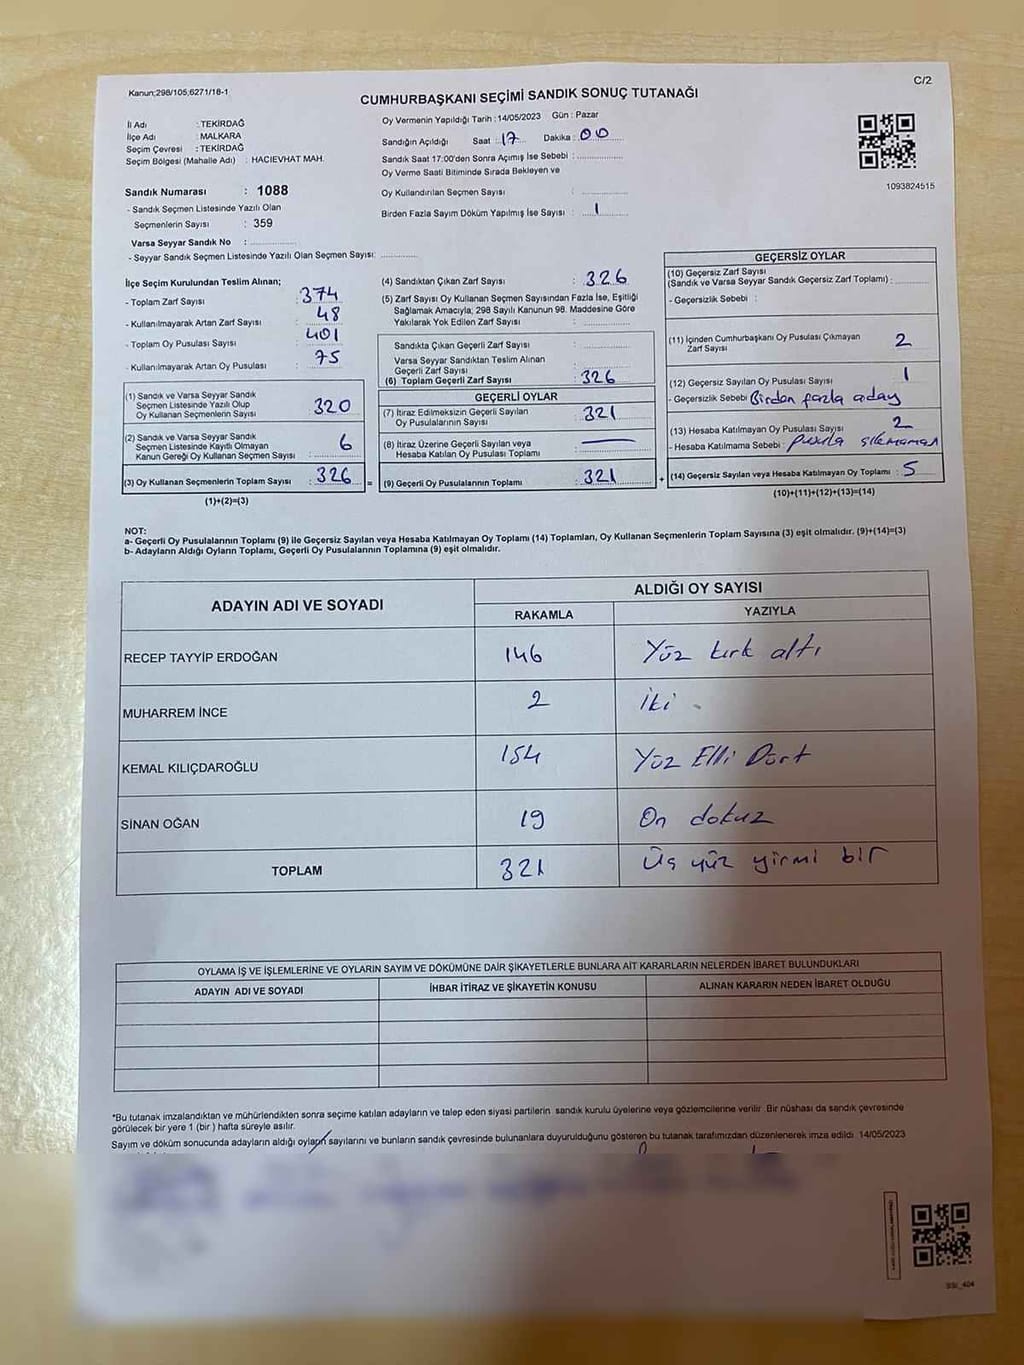 Kanun;298/105,6271/18-1
C/2
CUMHURBAŞKANI SEÇİMİ SANDIK SONUÇ TUTANAĞI
İl Adı : TEKİRDAĞ
İlçe Adı : MALKARA
Seçim Çevresi : TEKİRDAĞ
Seçim Bölgesi (Mahalle Adı) : HACIEVHAT MAH.
Sandık Numarası : 1088
- Sandık Seçmen Listesinde Yazılı Olan
Seçmenlerin Sayısı : 359
Varsa Seyyar Sandık No :
- Seyyar Sandık Seçmen Listesinde Yazılı Olan Seçmen Sayısı:
Oy Vermenin Yapıldığı Tarih : 14/05/2023 Gün : Pazar
Sandığın Açıldığı Saat : 17 Dakika : 00
Sandık Saat 17:00'den Sonra Açımış İse Sebebi :
Oy Verme Saati Bitiminde Sırada Bekleyen ve
Oy Kullandırılan Seçmen Sayısı :
Birden Fazla Sayım Döküm Yapılmış İse Sayısı : 1
1093824515
İlçe Seçim Kurulundan Teslim Alınan;
- Toplam Zarf Sayısı : 374
- Kullanılmayarak Artan Zarf Sayısı : 48
- Toplam Oy Pusulası Sayısı : 401
- Kullanılmayarak Artan Oy Pusulası : 75
(1) Sandık ve Varsa Seyyar Sandık
Seçmen Listesinde Yazılı Olup
Oy Kullanan Seçmenlerin Sayısı : 320
(2) Sandık ve Varsa Seyyar Sandık
Seçmen Listesinde Kayıtlı Olmayan
Kanun Gereği Oy Kullanan Seçmen Sayısı : 6
(3) Oy Kullanan Seçmenlerin Toplam Sayısı : 326 =
(1)+(2)=(3)
(4) Sandıktan Çıkan Zarf Sayısı : 326
(5) Zarf Sayısı Oy Kullanan Seçmen Sayısından Fazla İse, Eşitliği
Sağlamak Amacıyla; 298 Sayılı Kanunun 98. Maddesine Göre
Yakılarak Yok Edilen Zarf Sayısı :
Sandıkta Çıkan Geçerli Zarf Sayısı :
Varsa Seyyar Sandıktan Teslim Alınan
Geçerli Zarf Sayısı :
(6) Toplam Geçerli Zarf Sayısı : 326
GEÇERLİ OYLAR
(7) İtiraz Edilmeksizin Geçerli Sayılan
Oy Pusulalarının Sayısı : 321
(8) İtiraz Üzerine Geçerli Sayılan veya
Hesaba Katılan Oy Pusulası Toplamı :
(9) Geçerli Oy Pusulalarının Toplamı : 321 +
GEÇERSİZ OYLAR
(10) Geçersiz Zarf Sayısı
(Sandık ve Varsa Seyyar Sandık Geçersiz Zarf Toplamı) :
- Geçersizlik Sebebi :
(11) İçinden Cumhurbaşkanı Oy Pusulası Çıkmayan
Zarf Sayısı : 2
(12) Geçersiz Sayılan Oy Pusulası Sayısı : 1
- Geçersizlik Sebebi : Birden fazla aday
(13) Hesaba Katılmayan Oy Pusulası Sayısı : 2
- Hesaba Katılmama Sebebi : pusula
(14) Geçersiz Sayılan veya Hesaba Katılmayan Oy Toplamı : 5
(10)+(11)+(12)+(13)=(14)
NOT:
a- Geçerli Oy Pusulalarının Toplamı (9) ile Geçersiz Sayılan veya Hesaba Katılmayan Oy Toplamı (14) Toplamları, Oy Kullanan Seçmenlerin Toplam Sayısına (3) eşit olmalıdır. (9)+(14)=(3)
b- Adayların Aldığı Oyların Toplamı, Geçerli Oy Pusulalarının Toplamına (9) eşit olmalıdır.
ADAYIN ADI VE SOYADI ALDIĞI OY SAYISI
RAKAMLA YAZIYLA
RECEP TAYYİP ERDOĞAN 146 Yüz kırk altı
MUHARREM İNCE 2 İki
KEMAL KILIÇDAROĞLU 154 Yüz Elli Dört
SİNAN OĞAN 19 On dokuz
TOPLAM 321 Üç yüz yirmi bir
OYLAMA İŞ VE İŞLEMLERİNE VE OYLARIN SAYIM VE DÖKÜMÜNE DAİR ŞİKAYETLERLE BUNLARA AİT KARARLARIN NELERDEN İBARET BULUNDUKLARI
ADAYIN ADI VE SOYADI İHBAR İTİRAZ VE ŞİKAYETİN KONUSU ALINAN KARARIN NEDEN İBARET OLDUĞU
*Bu tutanak imzalandıktan ve mühürlendikten sonra seçime katılan adayların ve talep eden siyasi partilerin sandık kurulu üyelerine veya gözlemcilerine verilir. Bir nüshası da sandık çevresinde
görülecek bir yere 1 (bir ) hafta süreyle asılır.
Sayım ve döküm sonucunda adayların aldığı oyların sayılarını ve bunların sandık çevresinde bulunanlara duyurulduğunu gösteren bu tutanak tarafımızdan düzenlenerek imza edildi. 14/05/2023